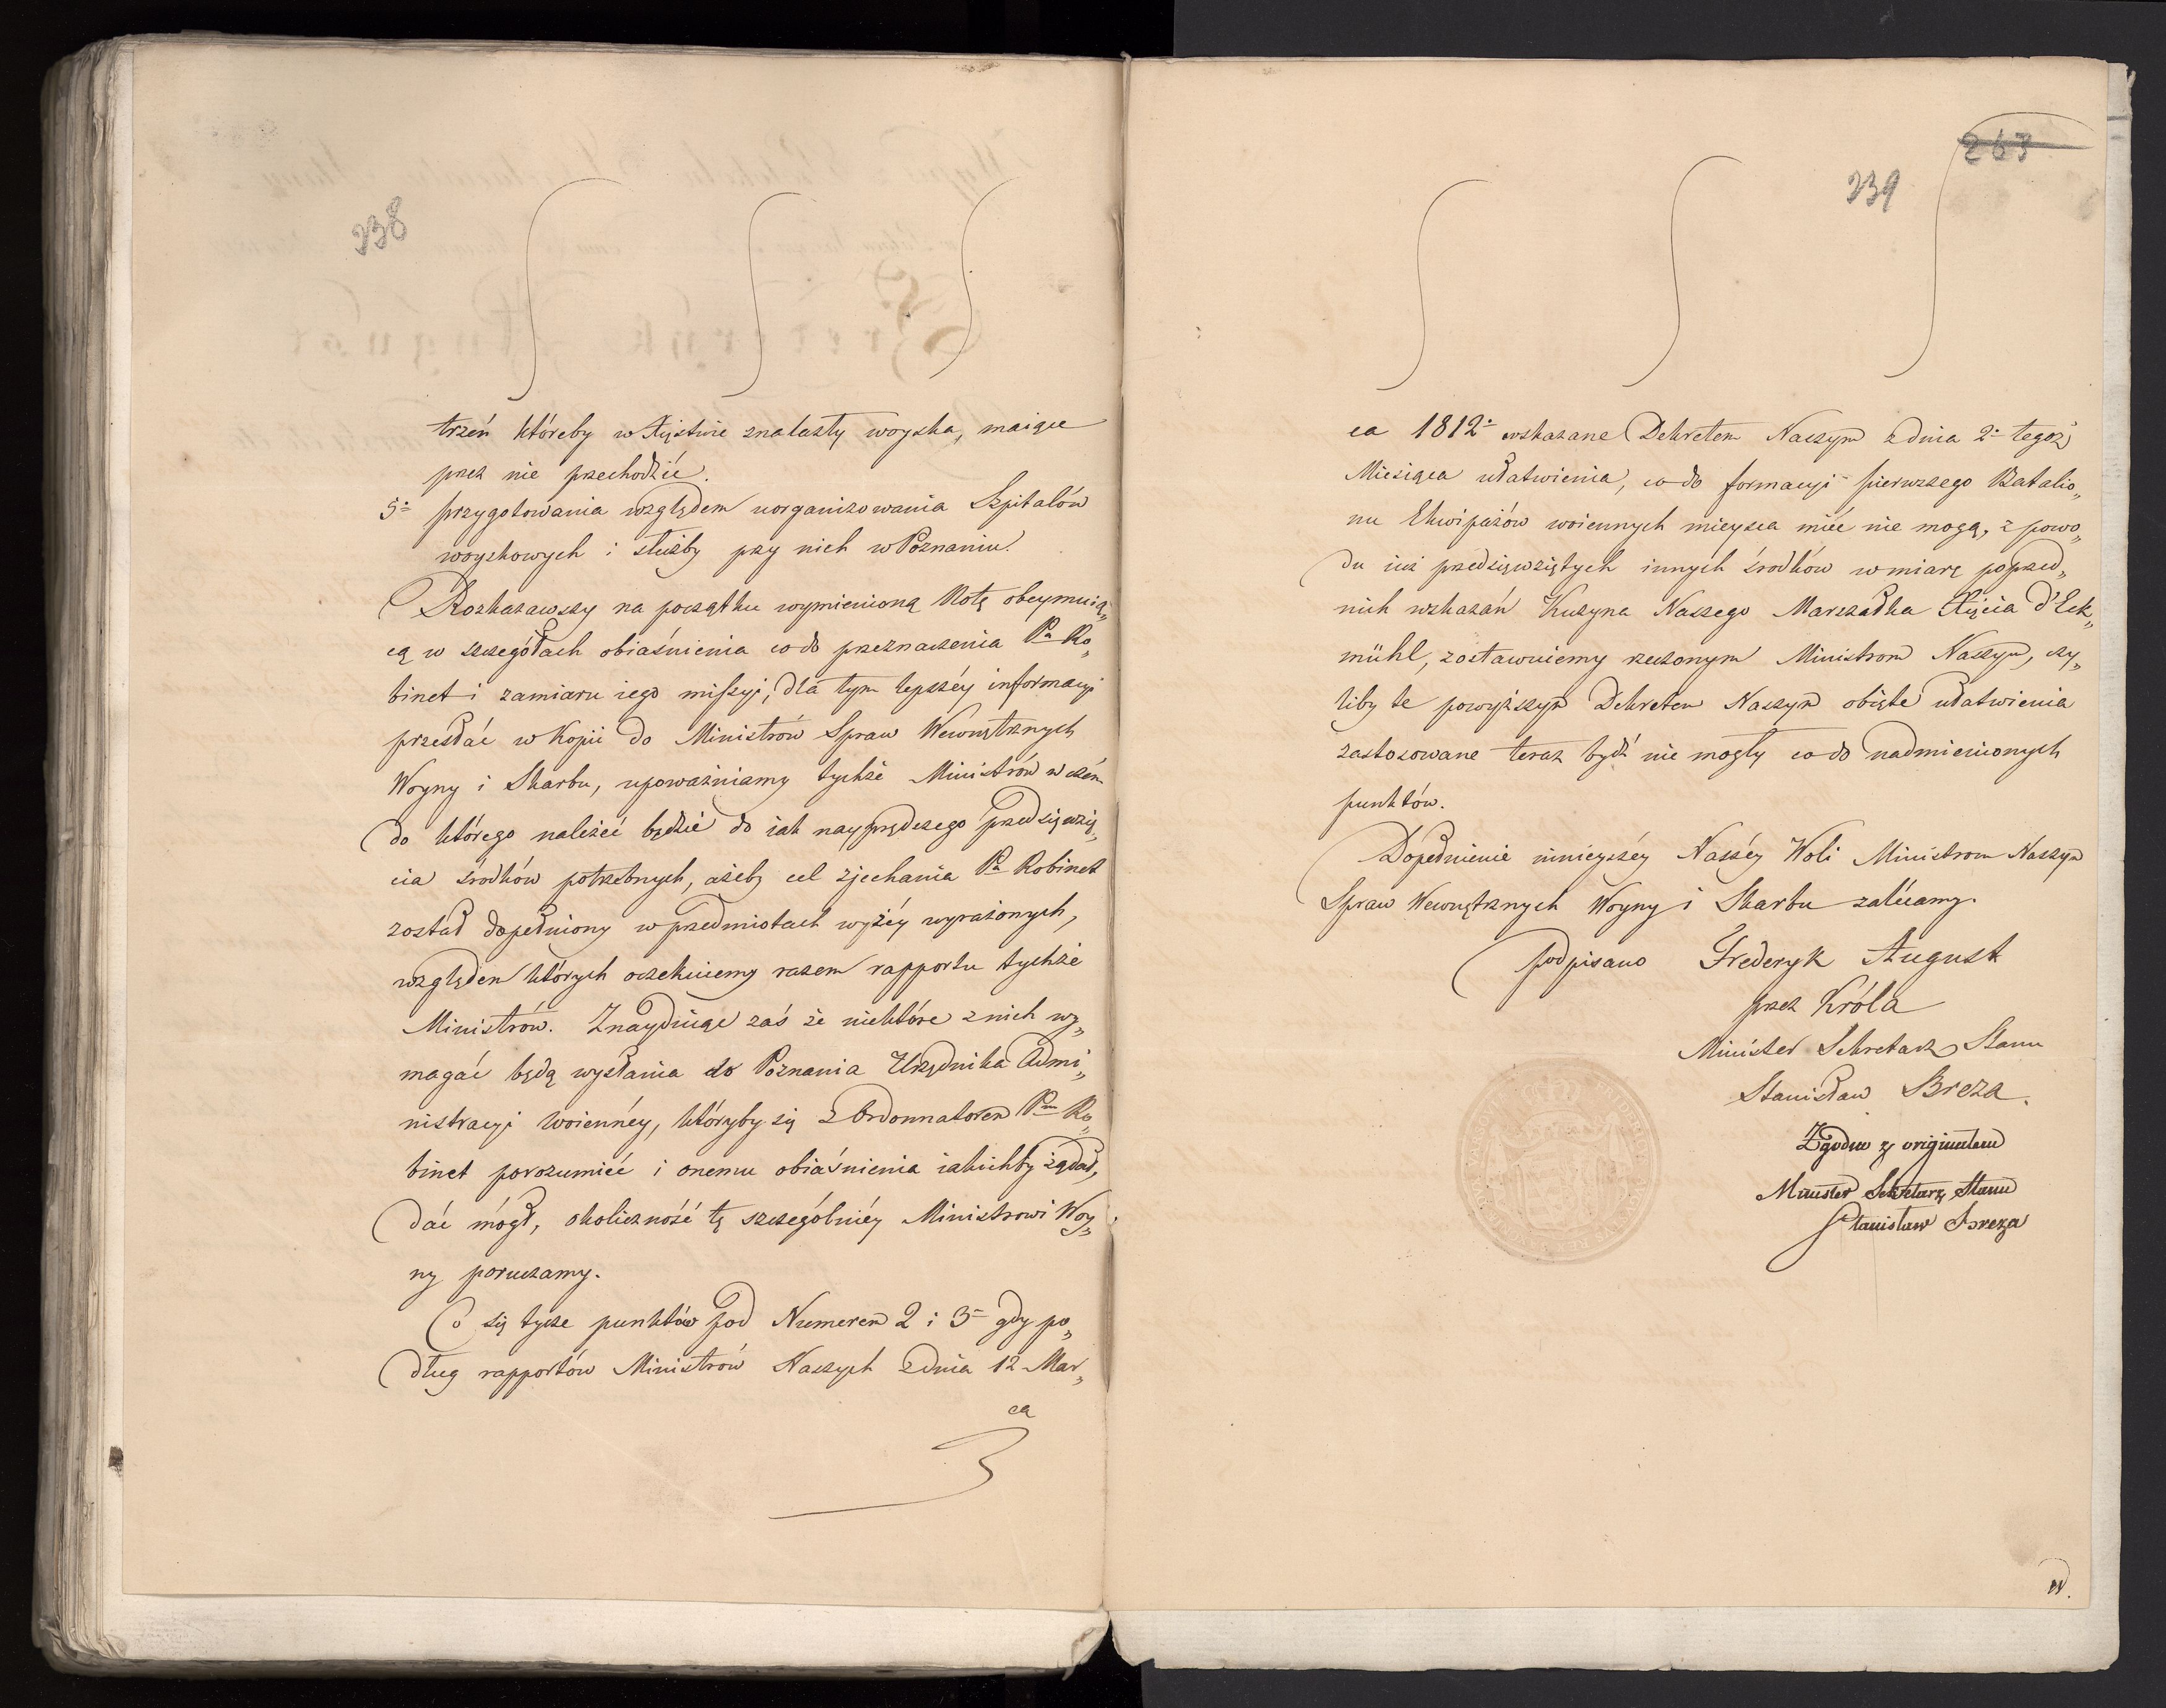 238
trzeń któreby w Xięstwie znalazły woyska, maiące
przez nie przechodzić.
5o przygotowania względem uorganizowania Szpitalów
woyskowych i służby przy nich w Poznaniu.
Rozkazawszy na początku wymienioną Notę obeymuią„
cą w szczegółach obiaśnienia co do przeznaczenia Pa Ro„
binet i zamiaru iego missyi, dla tym lepszéy informacyi
przesłać w Kopii do Ministrów Spraw Wewnętrznych
Woyny i Skarbu, upoważniamy tychże Ministrów w czém
do którego należéć będzie do iak nayprędszego przedsięwzię„
cia środków potrzebnych, ażeby cel zjechania Pa Robinet
został dopełniony w przedmiotach wyżéy wyrażonych,
względem których oczekuiemy razem rapportu tychże
Ministrów. Znayduiąc zaś że niektóre z nich wy„
magać będą wysłania do Poznania Urzędnika Admi„
nistracyi woiennéy, któryby się z Ordonnatorem Pm Ro„
binet porozumieć i onemu obiaśnienia iakichby żądał,
dać mógł, okoliczność tę szczególniéy Ministrowi Woy„
ny poruczamy.
Co się tycze punktów pod Numerem 2 i 3m gdy po„
dług rapportów Ministrów Naszych z dnia 12 Mar„
ca
263
239
ca 1812o wskazane Dekretem Naszym z dnia 2o tegoż
Miesiąca ułatwienia, co do formacyi pierwszego Batalio„
nu Ekwipażów woiennych mieysca mieć nie mogą, z powo„
du iuż przedsięwziętych innych środków w miarę poprzed„
nich wskazań Kuzyna Naszego Marszałka Xięcia d'Eck„
mühl, zostawuiemy rzeczonym Ministrom Naszym, czy„
liby te powyższym Dekretem Naszym obięte ułatwienia
zastosowane teraz bydź nie mogły co do nadmienionych
punktów.
Dopełnienie ninieyszéy Naszéy Woli Ministrom Naszym
Spraw Wewnętrznych Woyny i Skarbu zalécamy.
podpisano Frederyk August
przez Króla
Minister Sekretarz Stanu
Stanisław Breza.
Zgodno z originałem
Minister Sekretarz Stanu
Stanisław Breza